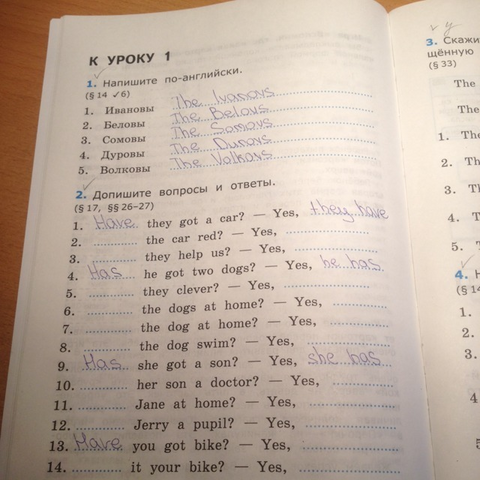 К УРОКУ 1
1. Напишите по-английски.
(§ 14 ✓6)
1. Ивановы The Ivanovs
2. Беловы The Belovs
3. Сомовы The Somovs
4. Дуровы The Durovs
5. Волковы The Volkovs
2. Допишите вопросы и ответы.
(§ 17, §§ 26–27)
1. Have they got a car? — Yes, they have
2. the car red? — Yes,
3. they help us? — Yes,
4. Has he got two dogs? — Yes, he has
5. they clever? — Yes,
6. the dogs at home? — Yes,
7. the dog at home? — Yes,
8. the dog swim? — Yes,
9. Has she got a son? — Yes, she has
10. her son a doctor? — Yes,
11. Jane at home? — Yes,
12. Jerry a pupil? — Yes,
13. Have you got bike? — Yes,
14. it your bike? — Yes,
3. Скажи
щённую
(§ 33)
The
The
1. The
2. Th
3. Th
4. T
5. T
4. Н
(§ 1
1.
2.
3.
4
5